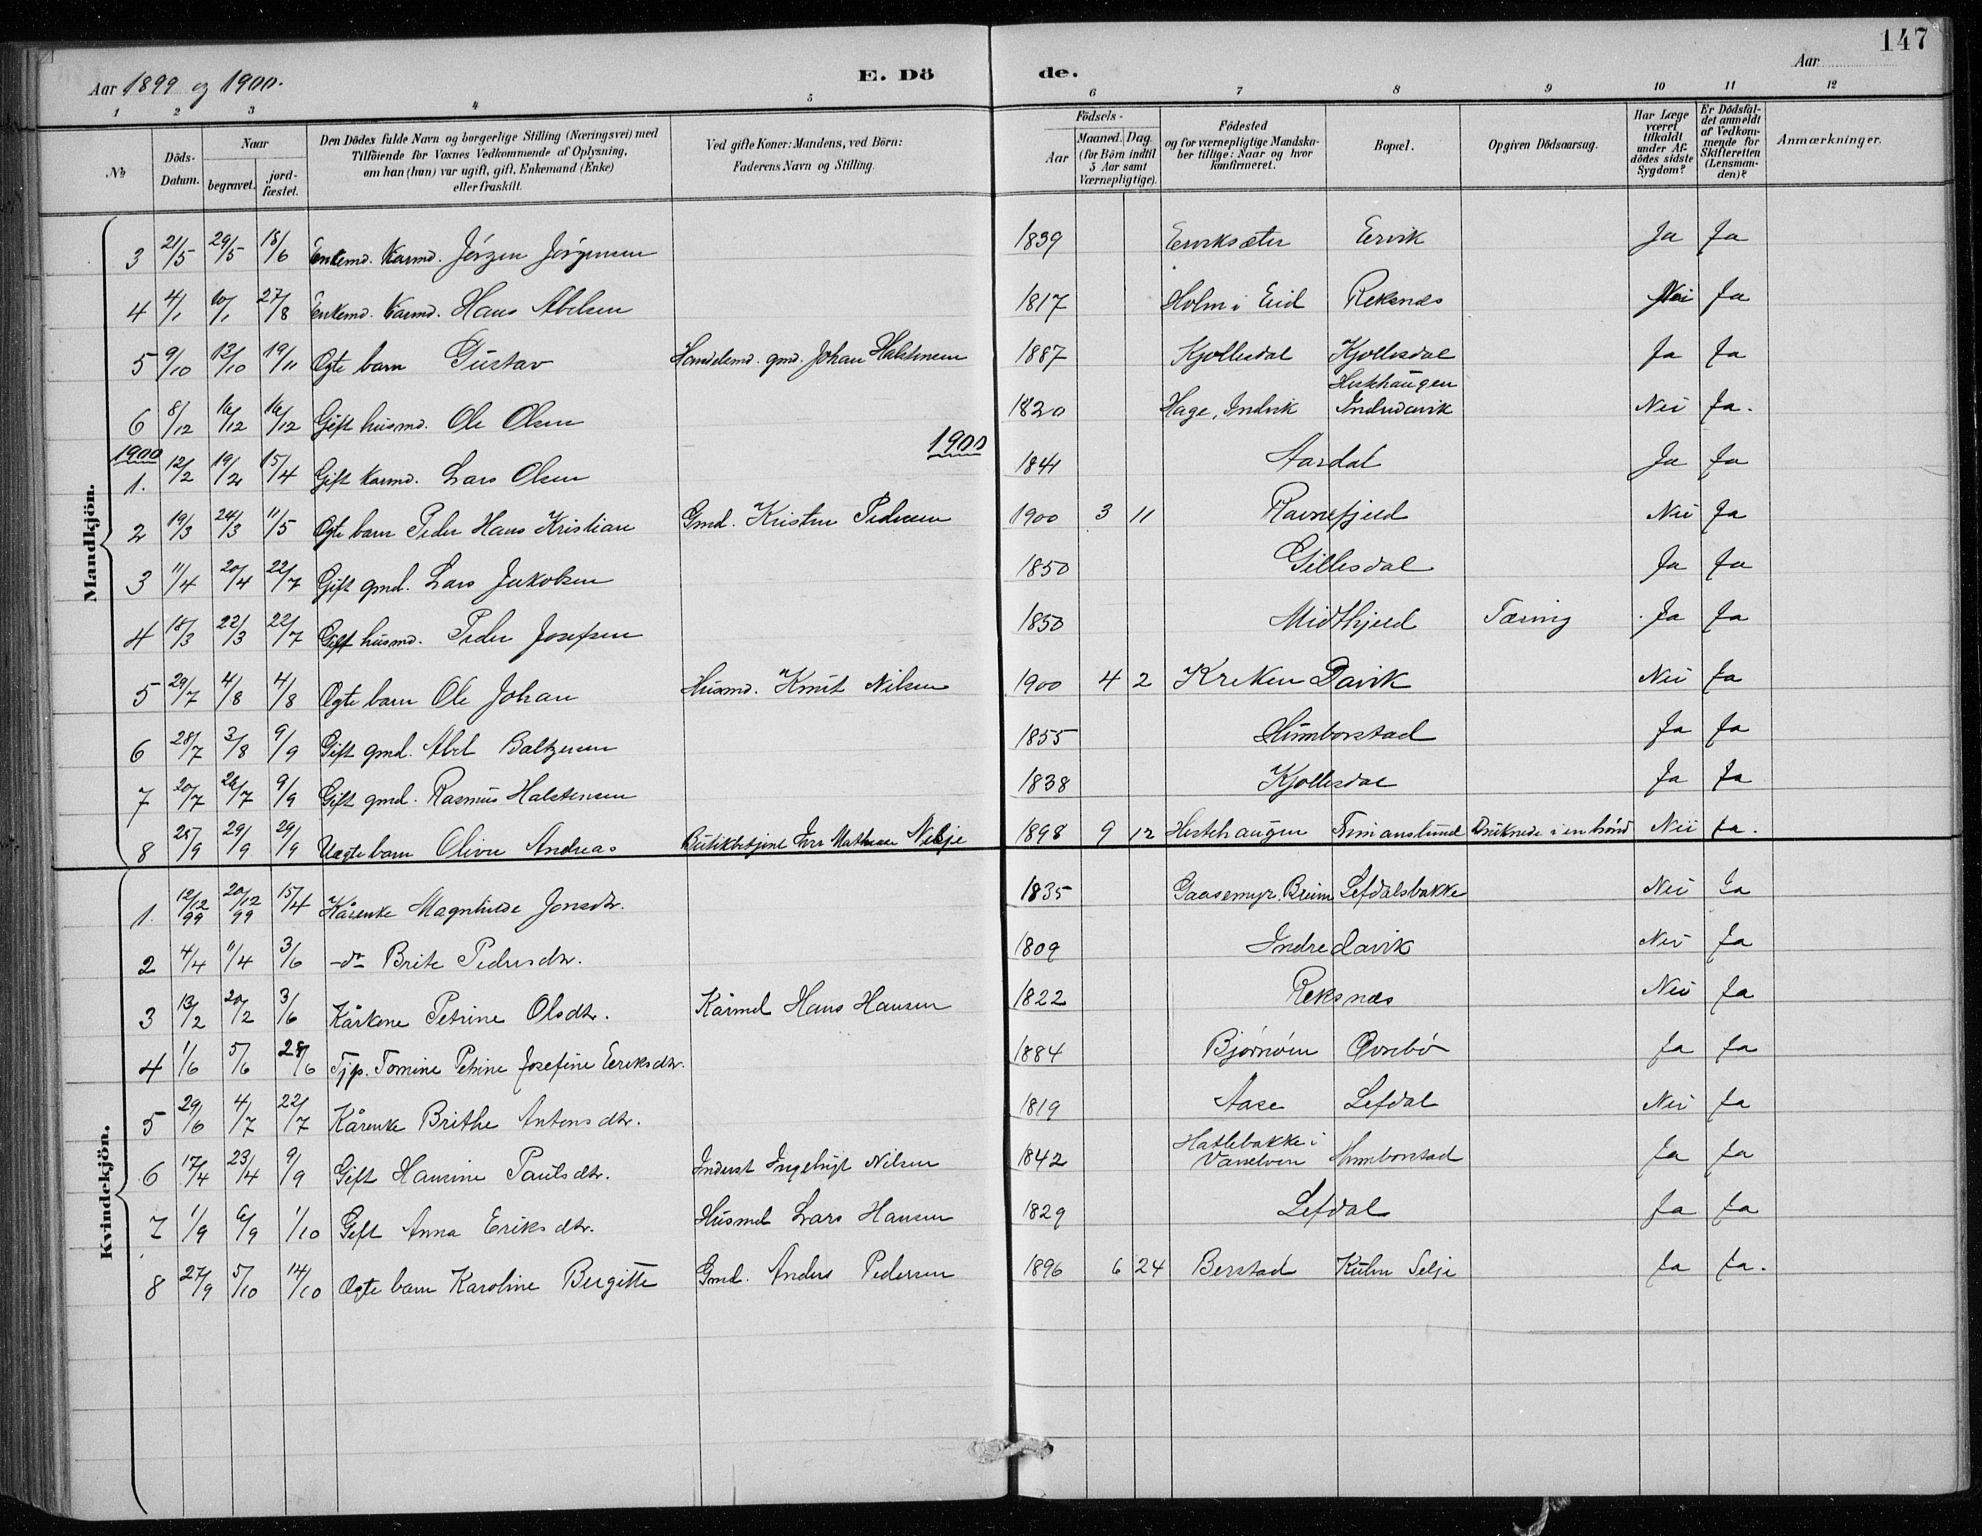 147
Aar 1899 og 1900. E. Dö de. Aar
1 2 3 4 5 6 7 8 9 10 11 12
№ Döds-Datum. Naar begravet. jord-fæstet. Den Dödes fulde Navn og borgerlige Stilling (Næringsvei) med Tilföiende for Voxnes Vedkommende af Oplysning, om han (hun) var ugift, gift, Enkemand (Enke) eller fraskilt. Ved gifte Koner: Mandens, ved Börn: Faderens Navn og Stilling. Födsels- Aar Maaned. Dag. (for Börn indtil 5 Aar samt Værnepligtige). Födested og for værnepligtige Mandskaber tillige: Naar og hvor konfirmeret. Bopæl. Opgiven Dödsaarsag. Har Læge været tilkaldt under Afdödes sidste Sygdom? Er Dödsfaldet anmeldt af Vedkommende for Skifteretten (Lensmanden)? Anmærkninger.
Mandkjön.
3 21/5 29/5 18/6 Enkemd. Karmd. Jörgen Jörgensen 1839 Erviksæter Ervik Ja Ja
4 4/1 10/1 27/8 Enkemd. Karmd. Hans Abelsen 1817 Holm i Eid Reksnes Nei Ja
5 9/10 13/10 19/11 Ægte barn Gustav Handelsmd. gmd. Johan Halstensen 1887 Kjollesdal Kjollesdal Ja Ja
6 8/12 16/12 16/12 Gift husmd. Ole Olsen 1820 Hage, Indvik Indredavik Nei Ja.
1900 1900
1. 12/2 19/2 15/4 Gift karmd. Lars Olsen 1841 Aardal Ja Ja
2 19/3 24/3 11/5 Ægte barn Peder Hans Kristian Gmd. Kristen Pedersen 1900 3 11 Ravnefjeld Nei Ja
3 11/4 20/4 22/7 Gift gmd. Lars Jakobsen 1850 Gillesdal Ja Ja
4 18/3 22/3 22/7 Gift husmd. Peder Josefsen 1850 Midthjeld Tæring Ja Ja
5 29/7 4/8 4/8 Ægte barn Ole Johan Husmd. Knut Nilsen 1900 4 2 Kreken Davik Nei Ja
6 28/7 3/8 9/9 Gift gmd. Abel Baltzersen 1855 Hunborstad Ja Ja
7 20/7 26/7 9/9 Gift gmd. Rasmus Halstensen 1838 Kjollesdal Ja Ja
8 25/9 29/9 29/9 Uægte barn Oliver Andreas Butikbetjent Nesje 1898 9 12 Hestehaugen Druknede i en brönd Nei Ja.
Kvindekjön.
1. 12/12 99 20/12 99 15/4 Kårenke Magnhilde Jonsdtr. 1835 Gaasemyr, Breim Lefdalsbakke Nei Ja
2 4/4 11/4 3/6 -do- Brite Pedersdtr. 1809 Indredavik Nei Ja
3 13/2 20/2 3/6 Kårkone Petrine Olsdtr. Kårmd Hans Hansen 1822 Reksnes Nei Ja
4 1/6 5/6 28/6 Tjp. Tomine Petrine Josefine Eeriksdtr. 1884 Ja Ja
5 29/6 4/7 22/7 Kårenke Brithe Antonsdtr. 1819 Aase Lefdal Nei Ja
6 17/4 23/4 9/9 Gift Hansine Paulsdtr. Inderst Ingebrigt Nilsen 1842 Hatlebakke i Vanelven Hunborstad Ja Ja
7 1/9 6/9 1/10 Gift Anna Eriksdtr. Husmd Lars Hansen 1829 Lefdal Ja Ja
8 27/9 5/10 14/10 Ægte barn Karoline Bergitte Gmd. Anders Pedersen 1896 6 24 Berstad Selje Ja Ja.